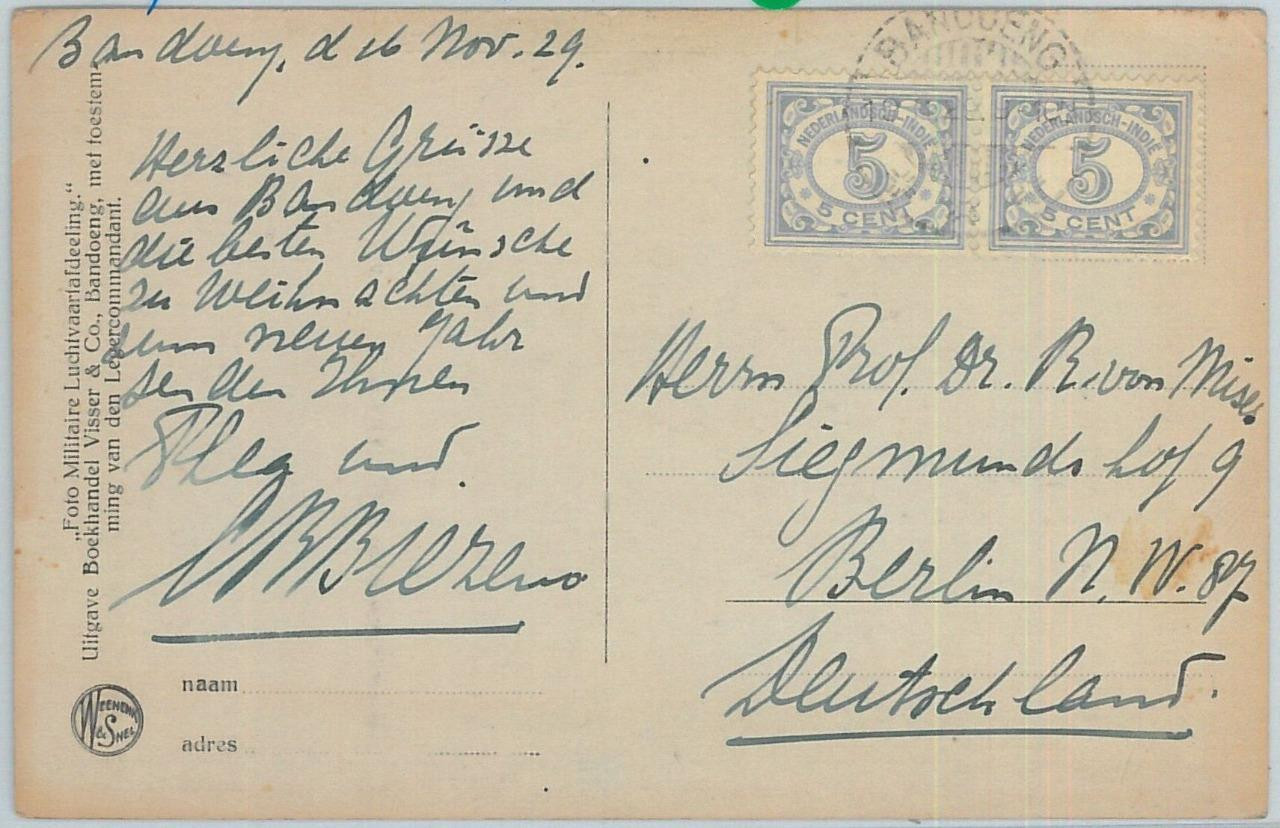 Bandoeng, d 16 Nov. 29.
Herzliche Grüsse
aus Bandoeng und
die besten Wünsche
zu Weihnachten und
zum neuen Jahr
senden Ihnen
Thea und
CBBiezeno
„Foto Militaire Luchtvaartafdeeling.“
Uitgave Boekhandel Visser & Co., Bandoeng, met toestem-
ming van den Legercommandant.
WEENENK & SNEL
naam
adres
BANDOENG
NEDERLANDSCH-INDIË
5
5 CENT
NEDERLANDSCH-INDIË
5
5 CENT
Herrn Prof. Dr. R. von Mises
Siegmundshof 9
Berlin N.W. 87
Deutschland.